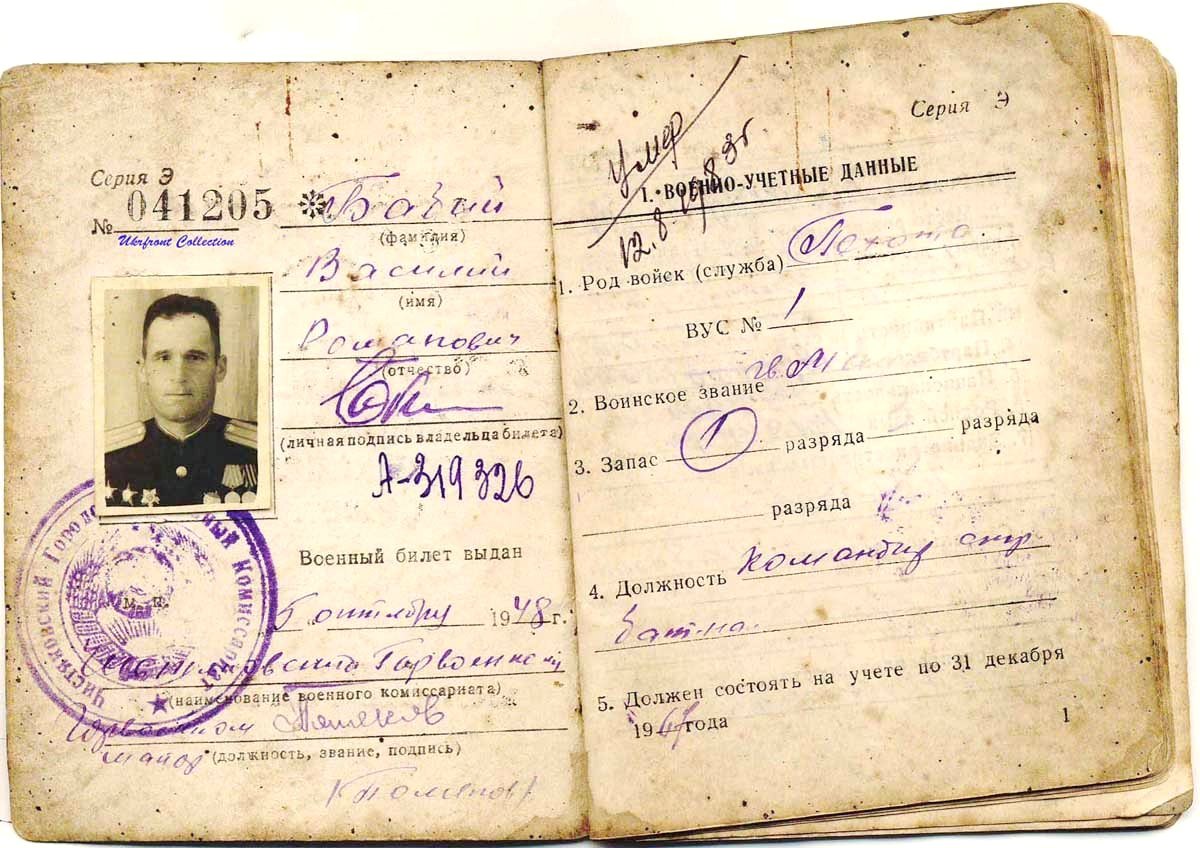 Серия Э
№ 041205
Ukrfront Collection
Бабий
(фамилия)
Василий
(имя)
Романович
(отчество)
(личная подпись владельца билета)
А-319326
Военный билет выдан
5 октября 1948 г.
Чистяковский Горвоенком
(наименование военного комиссариата)
Горвоенком
майор
(должность, звание, подпись)
Чистяковский Городской Военный Комиссариат
М. П.
Серия Э
умер
12.8.1983г.
I. ВОЕННО-УЧЕТНЫЕ ДАННЫЕ
1. Род войск (служба) Пехота
ВУС № 1
2. Воинское звание гв.
3. Запас 1 разряда разряда
разряда
4. Должность Командир стр.
бат-на.
5. Должен состоять на учете по 31 декабря
19 года
1